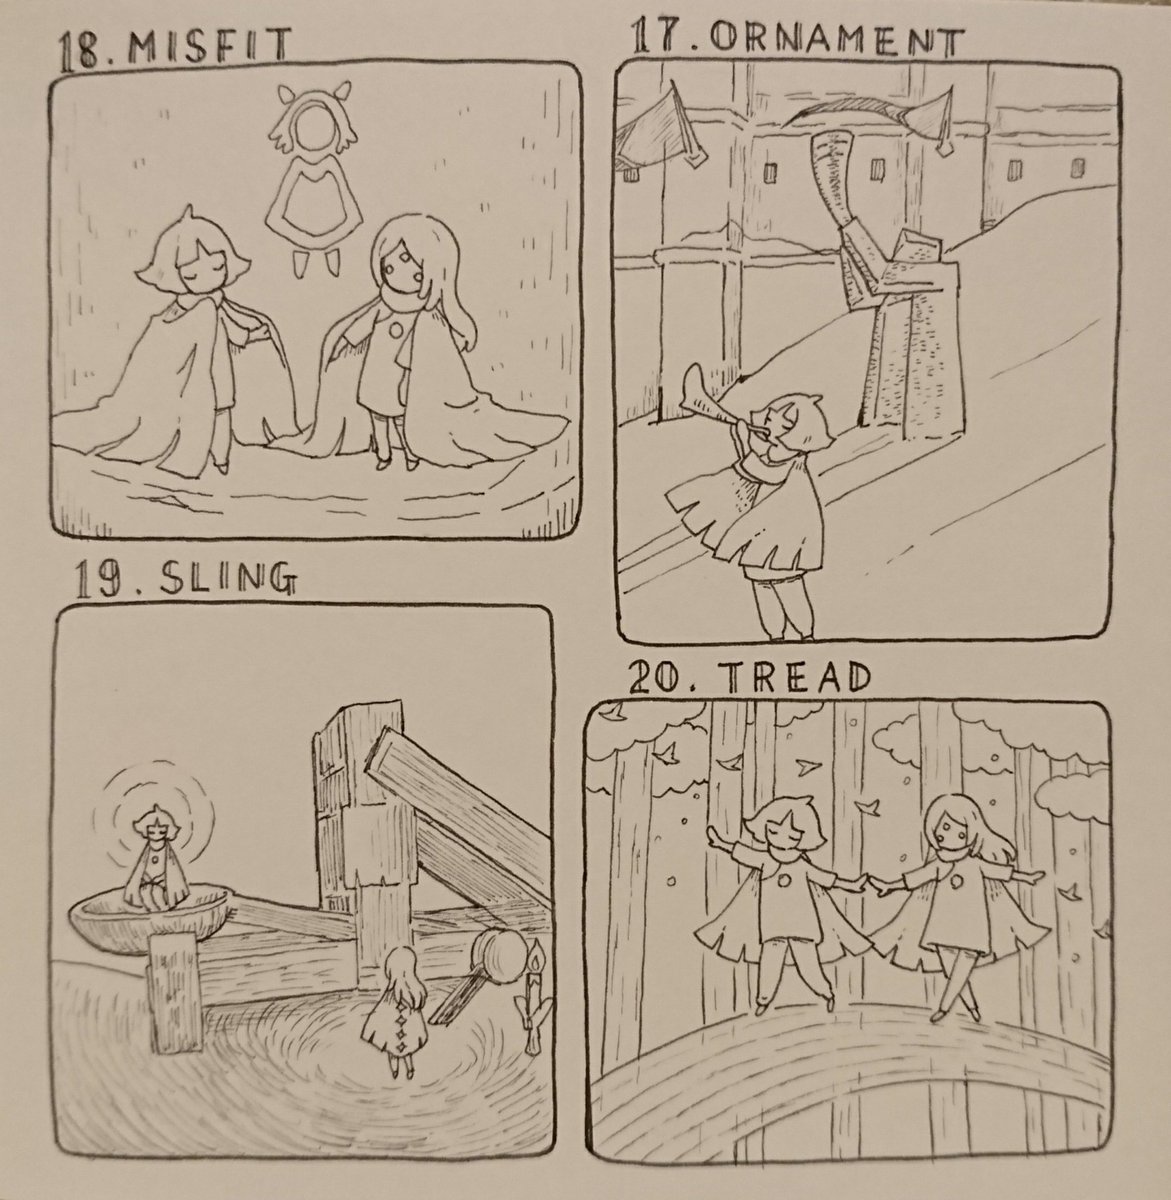 18. MISFIT
17. ORNAMENT
19. SLING
20. TREAD